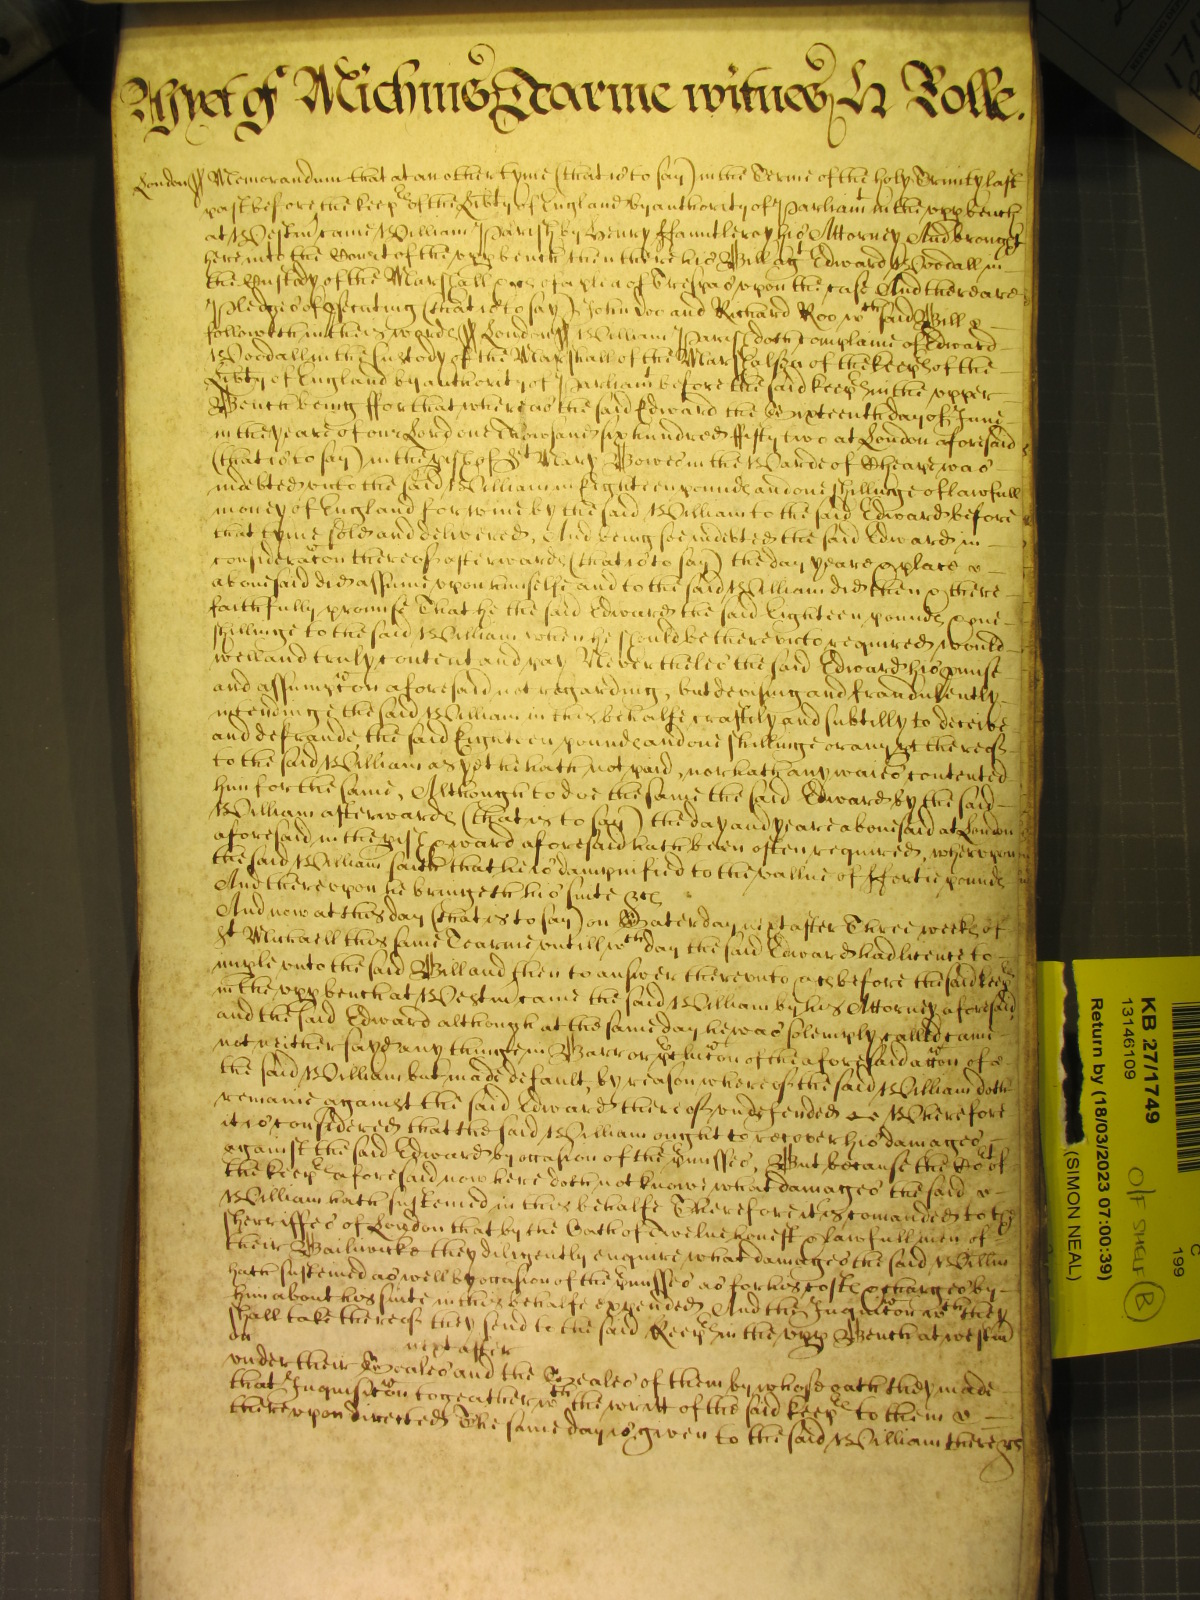 As yet of Michmis Tearme witnes H Rolle.
London ss Memorandum that at an other tyme (that is to say) in the Terme of the holy Trinity last
past before the keep's of the Lib'ty of England by authority of Parliam't in the upp bench
at Westm' came William Parish by Henry Fauntleroy his Attorney And brought
here into the Court of the upp bench then there his Bill ag't Edward Woodall in
the Custody of the Marshall &c of a plea of Trespas upon the case And there are
Pledges of p'secuting (that is to say) John Doo and Richard Roo w'ch said Bill
followeth in theis words ss London ss William Parish doth complaine of Edward
Woodall in the Custody of the Marshall of the Marshalsea of the keep's of the
Lib'ty of England by authority of Parliam't before the said keep's in the upper
Bench being ffor that whereas the said Edward the Sixteenth day of June
in the yeare of our Lord one Thowsand six hundred fifty two at London aforesaid
(that is to say) in the p'ish of St Mary Bowe in the Warde of Cheape was
indebted unto the said William in Eighteen pounds and one shillinge of lawfull
money of England for wine by the said William to the said Edward before
that tyme sold and delivered, And being soe indebted the said Edward in
consideracon thereof afterwards (that is to say) the day yeare & place
abovesaid did assume upon himselfe and to the said William did then & there
faithfully promise That he the said Edward the said Eighteen pounds & one
shillinge to the said William when he should be thereunto required would
well and truly content and pay Nevertheles the said Edward his p'mise
and assumpcon aforesaid not regarding, but devising and fraudulently
intendinge the said William in this behalfe craftily and subtilly to deceive
and defraude, the said Eighteen pounds and one shillinge or any p't thereof
to the said William as yet he hath not paid, nor hath any waies contented
him for the same, Although to doe the same the said Edward by the said
William afterwards (that is to say) the day and yeare abovesaid at London
aforesaid in the p'ish & ward aforesaid hath been often required, whereupon
the said William saith that he is dampnified to the vallue of ffortie pounds
And thereupon he bringeth his suite &c
And now at this day (that is to say) on Saterday next after Three weeks of
St Michaell this same Tearme untill w'ch day the said Edward had licence to
imple unto the said Bill and then to answer thereunto &c before the said keep's
in the upp bench at Westm' came the said William by his Attorney aforesaid
and the said Edward although at the same day he was solemply called came
not neither sayd any thinge in Barr or p'clucon of the aforesaid accon of
the said William but made default, by reason whereof the said William doth
remaine against the said Edward thereof undefended &c Wherefore
it is considered that the said William ought to recover his damages
against the said Edward by occasion of the p'misses, But because the Co't of
the keep's aforesaid now here doth not knowe what damages the said
William hath susteined in this behalfe Therefore it is comanded to the
Sherriffes of London that by the Oath of Twelve honest & lawfull men of
their Bailiwicke they diligently enquire what damages the said Willm
hath susteined as well by occasion of the p'misses as for his costs & charges by
him about his suite in this behalfe expended And the Inquisicon w'ch they
shall take thereof they send to the said Keep's in the upp Bench at westm'
on next after
under their Seales and the Seales of them by whose oath they made
that Inquisicon togeather w'th the writt of the said keep's to them
thereupon directed The same day is given to the said William there &c
KB 27/1749
13146109
Return by (18/03/2023 07:00:39)
(SIMON NEAL)
O/F SHELF B
C
199